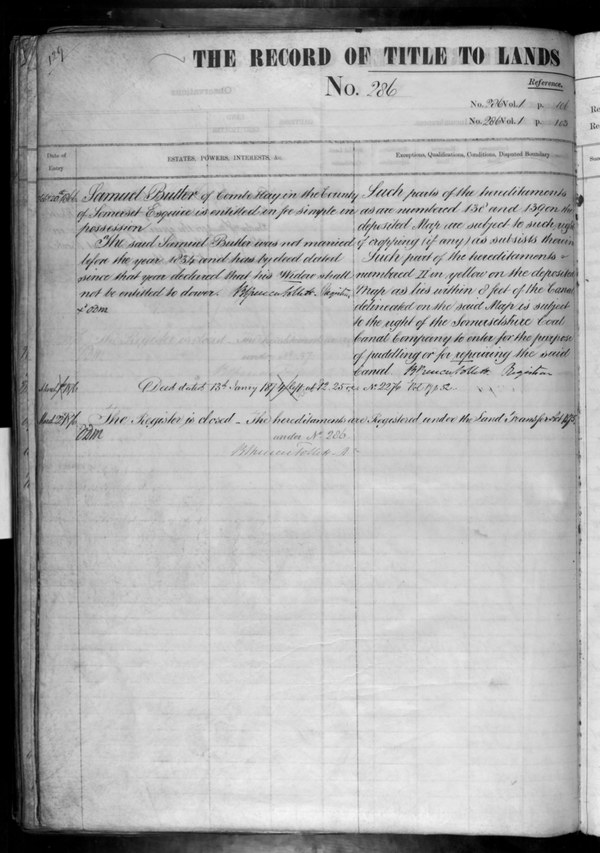 129
THE RECORD OF TITLE TO LANDS
No. 286
Reference.
No. 286 Vol. 1 p. 106
No. 286 Vol. 1 p. 105
Date of Entry
ESTATES, POWERS, INTERESTS, &c.
Exceptions, Qualifications, Conditions, Disputed Boundary
Samuel Butler of Combe Hay in the County
of Somerset Esquire is entitled in fee simple in
possession
The said Samuel Butler was not married
before the year 1834 and has by deed dated
since that year declared that his Widow shall
not be entitled to dower. Registrar
Such parts of the hereditaments
as are numbered 138 and 139 on the
deposited Map are subject to such right
of cropping (if any) as subsists therein
Such part of the hereditaments
numbered II in yellow on the deposited
Map as lies within 8 feet of the Canal
delineated on the said Map is subject
to the right of the Somersetshire Coal
Canal Company to enter for the purpose
of puddling or for repairing the said
Canal. Registrar
Deed dated 13th Janry 187 at 12.25 No 2276 Vol. 19 p. 52
The Register is closed – The hereditaments are Registered under the Land Transfer Act 1875
under No 286